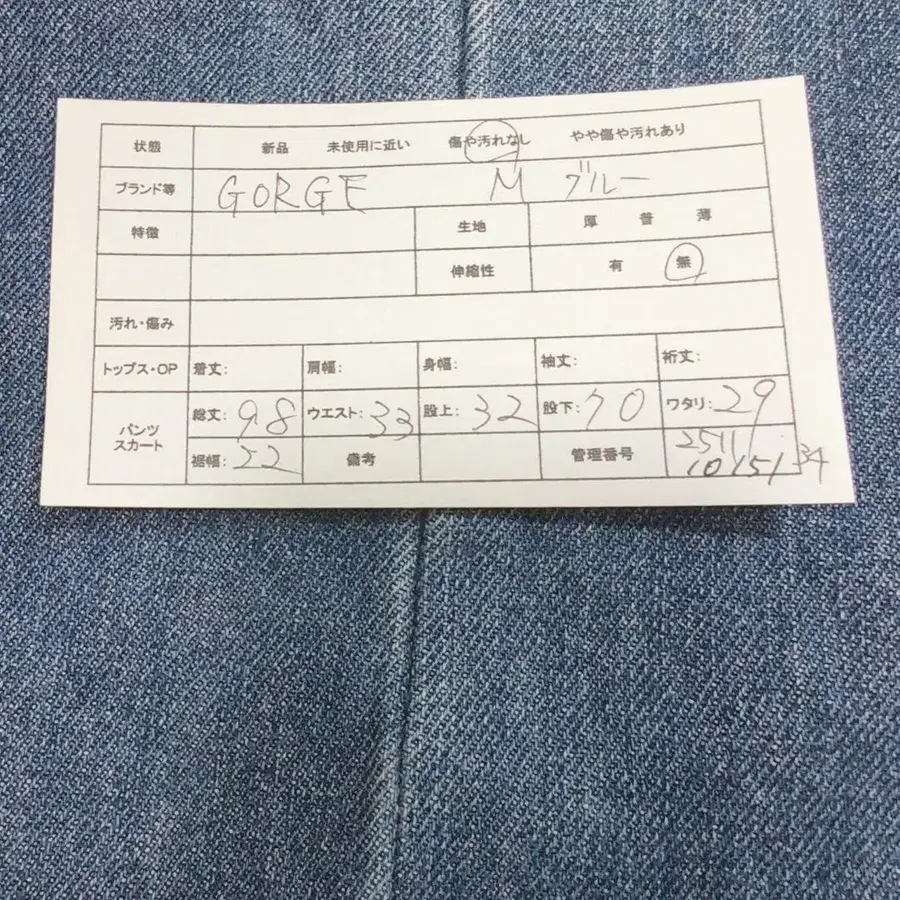 状態 新品 未使用に近い 傷や汚れなし やや傷や汚れあり
ブランド等 GORGE M ブルー
特徴 生地 厚 普 薄
伸縮性 有 無
汚れ・傷み
トップス・OP 着丈: 肩幅: 身幅: 袖丈: 裄丈:
パンツ スカート 総丈: 98 ウエスト: 33 股上: 32 股下: 70 ワタリ: 29
裾幅: 22 備考 管理番号 2511
10151 34